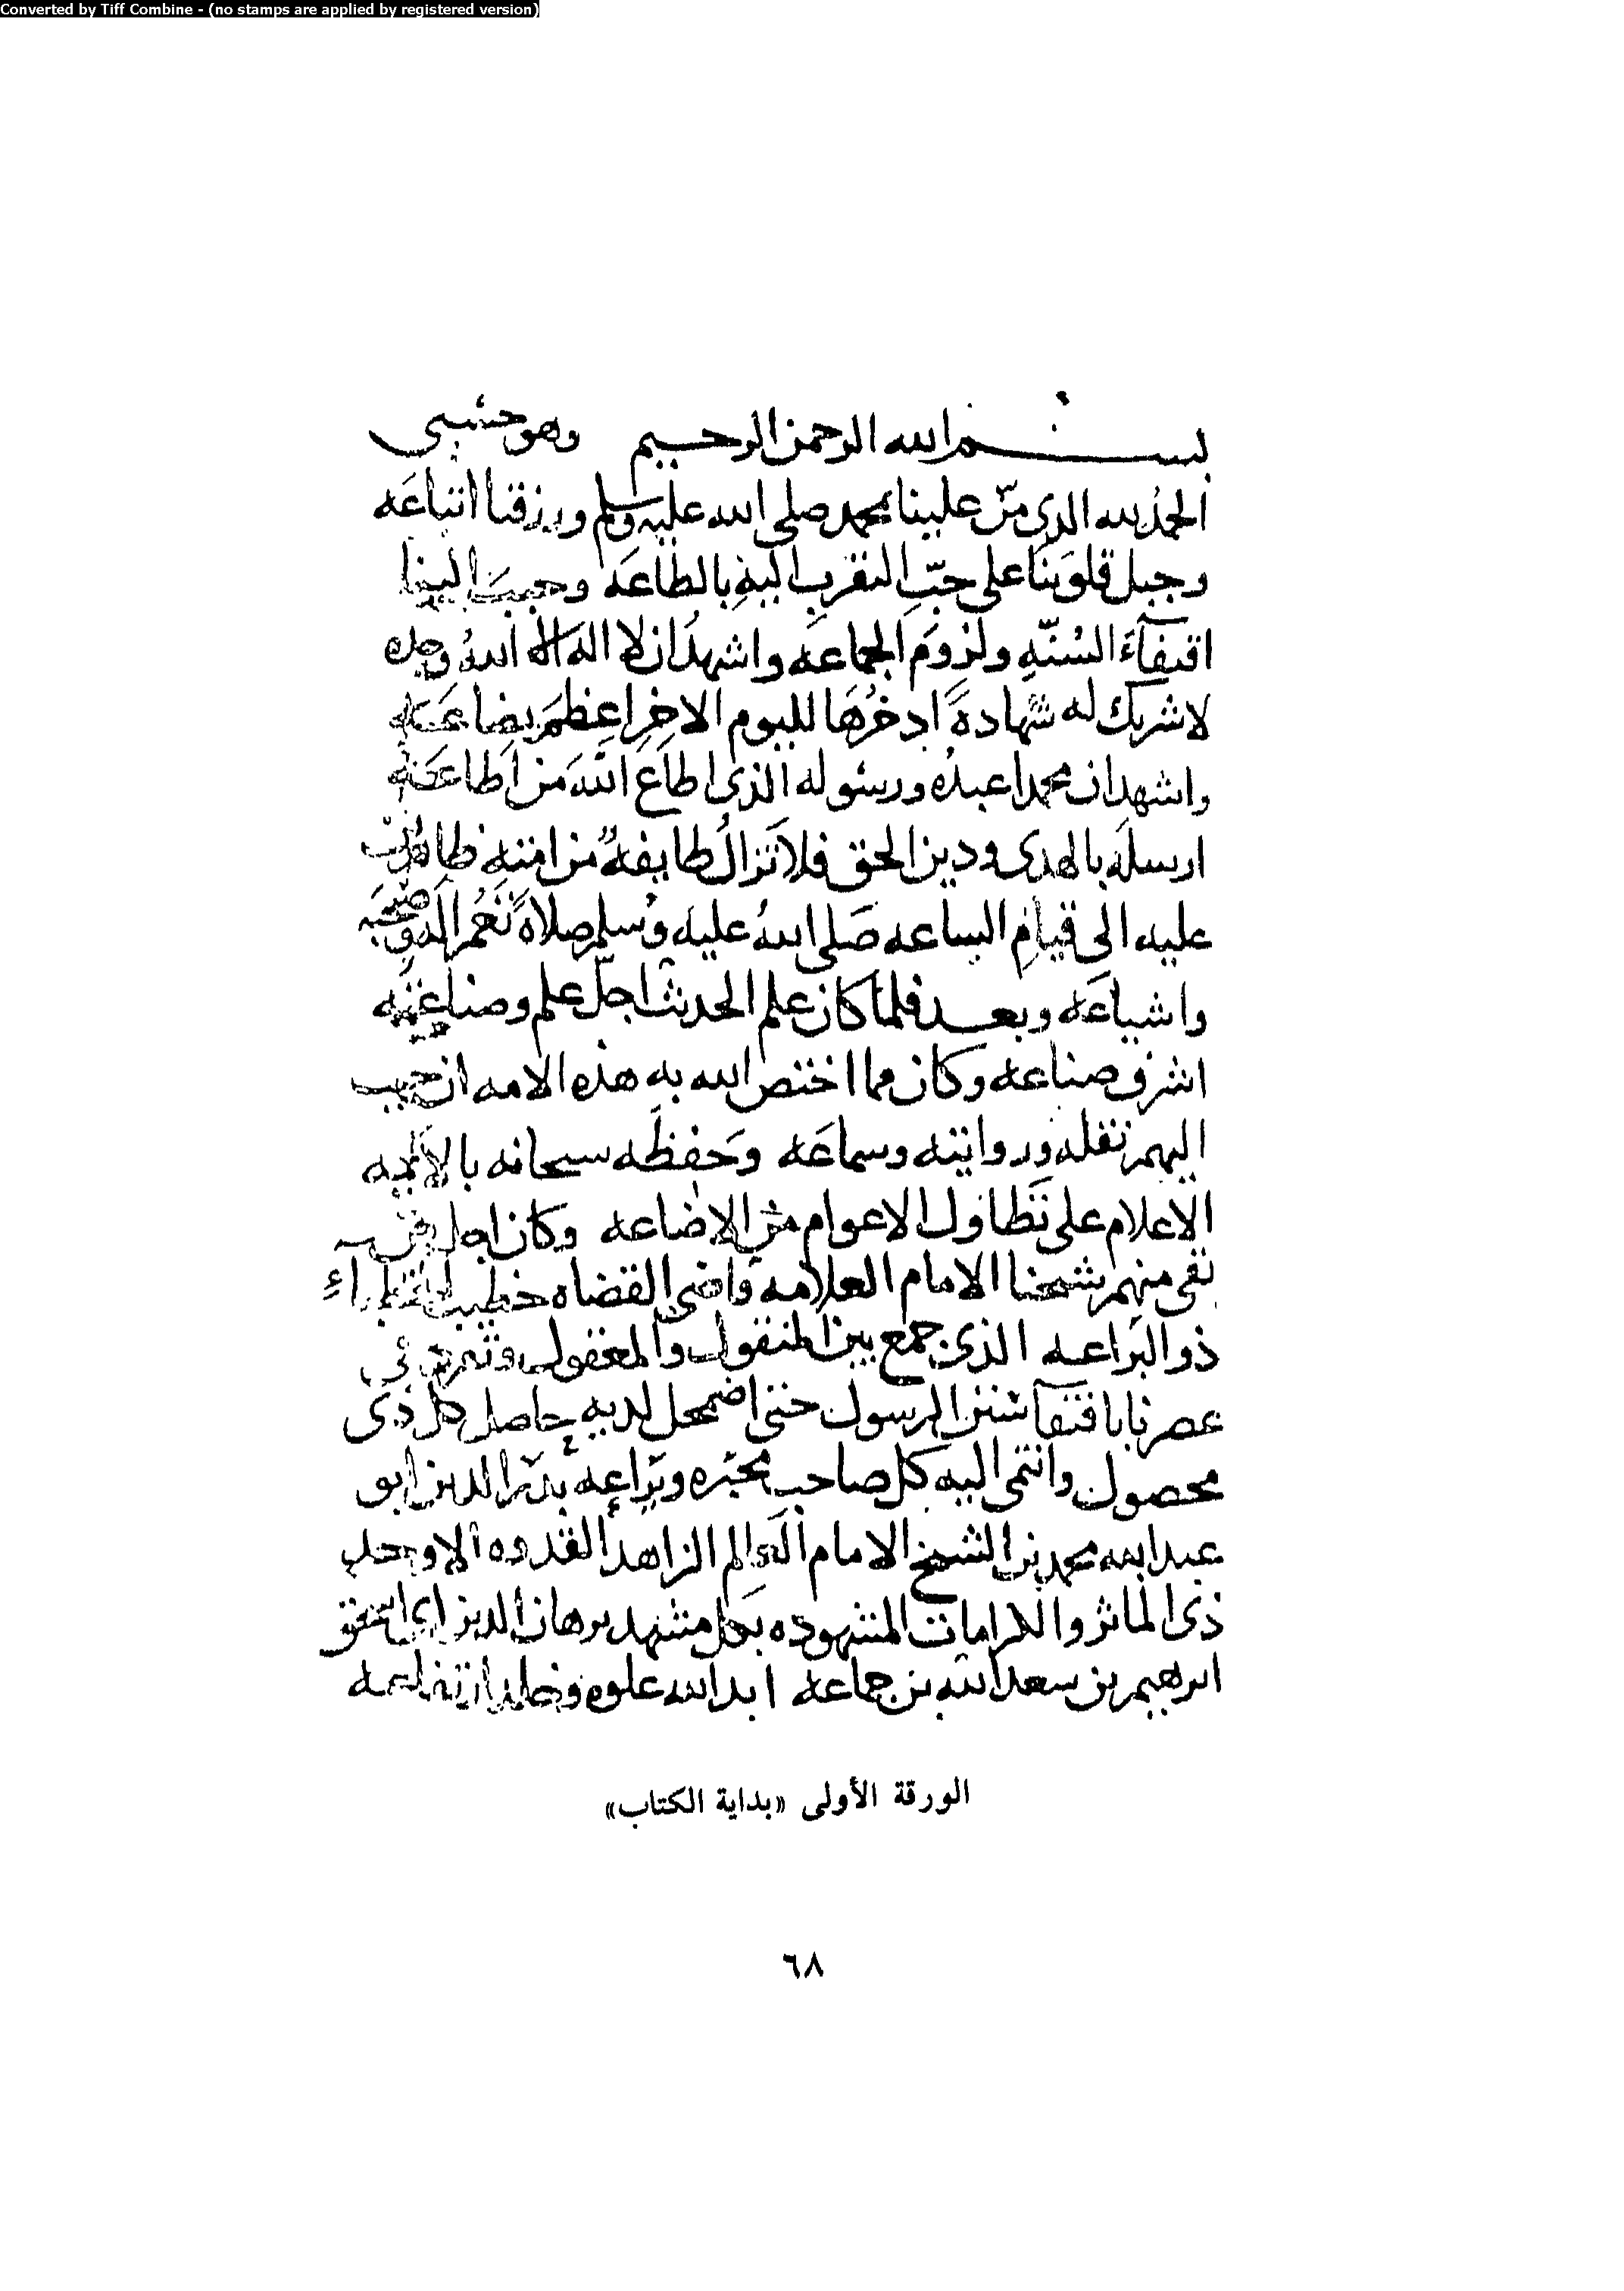 Converted by Tiff Combine - (no stamps are applied by registered version)
بسم الله الرحمن الرحيم وهو حسبي
الحمدُ لله الذي منّ علينا بمحمد صلى الله عليه وسلم ورزقنا اتباعَه
وجبل قلوبَنا على حبّ التقربِ اليهِ بالطاعَه وحببَ الينا
اقتفآءَ السُنّهِ ولزومَ الجماعه واشهدُ ان لا اله الا اللهُ وحده
لا شريك له شهادةً ادخرُهَا لليوم الاخرِ اعظمَ بضاعه
واشهد ان محمدا عبدُه ورسوله الذى اطاعَ اللهَ من اطاعَه
ارسله بالهدى ودين الحق فلا تزالُ طايفةٌ من امته ظاهرين
عليه الى قيامِ الساعه صَلى اللهُ عليه وسلم صلاةً تَعُم اله وصحبَه
واشياعَه وبعد فلما كان علم الحديث اجلّ علم وصناعته
اشرف صناعه وكان مما اختص الله به هذه الامه ان حبب
اليهم نقله وروايته وسماعَه وحَفظَه سبحانه بالايمه
الاعلام على تَطاول الاعوام من الاضاعه وكان اجل من
بقى منهم شيخنا الامام العلامه قاضى القضاه خطيب الخطباء
ذو البَراعه الذى جمع بين المنقول والمعقول وتميز في
عصرنا باقتفآ سنن الرسول حتى اضمحل لديه حاصل كل ذى
محصول وانتمى اليه كل صاحب محبره ويَراعه بدر الدين ابو
عبد الله محمد بن الشيخ الامام العالِم الزاهد القدوه الاوحد
ذى المآثر والكرامات المشهوده بكل مشهد برهان الدين ابى اسحق
ابرهيم بن سعد الله بن جماعه ابد الله علوه وخلد ارتفاعه
الورقة الأولى «بداية الكتاب»
٦٨